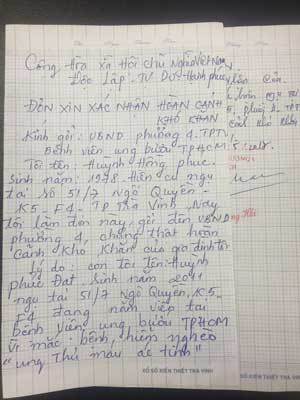 Cộng Hòa Xã Hội Chủ Nghĩa Việt Nam
Độc Lập - Tự Do - Hạnh phúc
ĐƠN XIN XÁC NHẬN HOÀN CẢNH
KHÓ KHĂN
Kính gởi: UBND phường 4. TPTV
Bệnh viện ung bướu TPHCM
Tôi tên: Huỳnh Hồng phúc.
Sinh năm: 1978. Hiện cư ngụ
tại số 51/7 Ngô Quyền -
K5 - F4 - TP Trà Vinh. Nay
tôi làm đơn này gởi đến UBND
phường 4, chứng thật hoàn
cảnh khó khăn của gia đình tôi
Lý do: con tôi tên: Huỳnh
phúc Đạt, sinh năm 2011
ngụ tại 51/7 Ngô Quyền, K5 -
F4 đang nằm viện tại
Bệnh viện ung bướu TPHCM
Vì mắc bệnh, hiểm nghèo
"ung thư máu ác tính"
XỔ SỐ KIẾN THIẾT TRÀ VINH